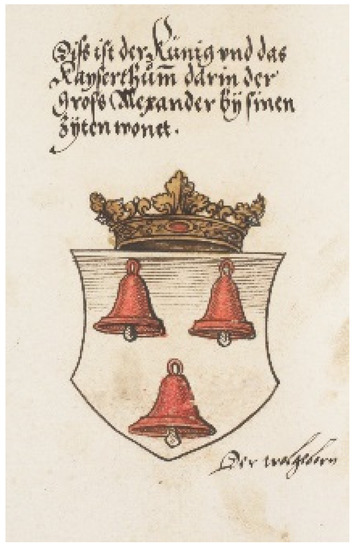 Diss ist der Künig vnd das
Kayserthum̄ darin der
gross Alexander by sinen
zyten wonet.
Der wolgeborn